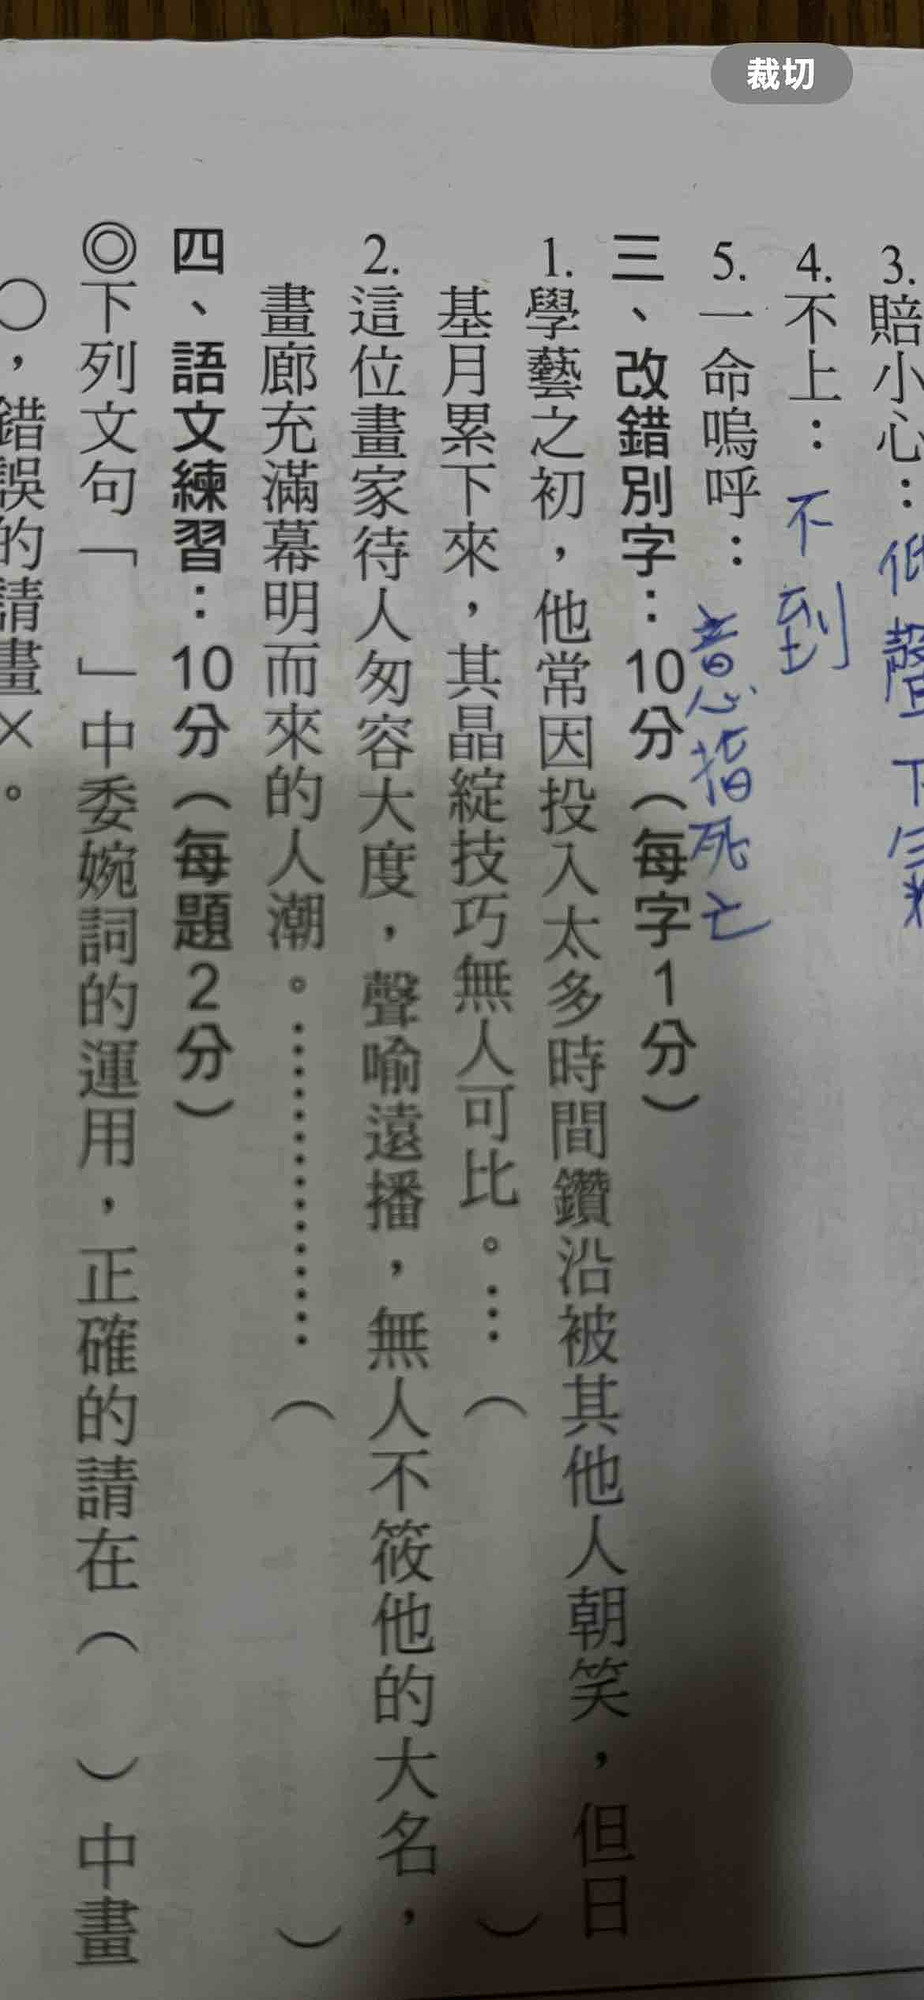 裁切
3. 賠小心：低聲下氣
4. 不上：不到
5. 一命嗚呼：意心指死亡
三、改錯別字：10分（每字1分）
1. 學藝之初，他常因投入太多時間鑽沿被其他人朝笑，但日
基月累下來，其晶綻技巧無人可比。…（　　）
2. 這位畫家待人匆容大度，聲喻遠播，無人不筱他的大名，
畫廊充滿幕明而來的人潮。………………（　　）
四、語文練習：10分（每題2分）
◎下列文句「　」中委婉詞的運用，正確的請在（　）中畫
○，錯誤的請畫×。